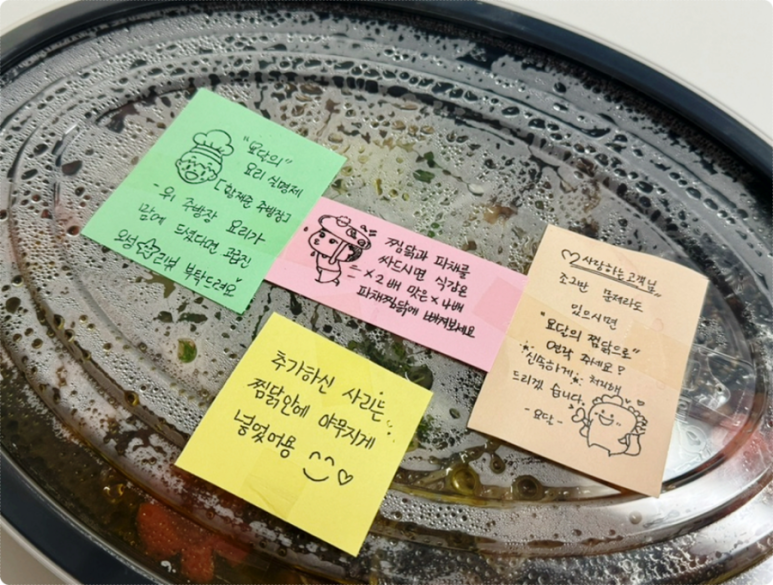 "요달의"
요리 실명제
[함재준 주방장]
- 위 주방장 요리가
맘에 드셨다면 고급진
오성☆리뷰 부탁드려요♡
찜닭과 파채를
싸드시면 식감은
×2배 맛은×4배
파채찜닭에 빠져보세요
추가하신 사리는
찜닭안에 야무지게
넣었어용
♡사랑하는고객님
조그만 문제라도
있으시면
"요달의 찜닭으로"
연락 주세요?
신속하게 처리해
드리겠습니다.
-요달-